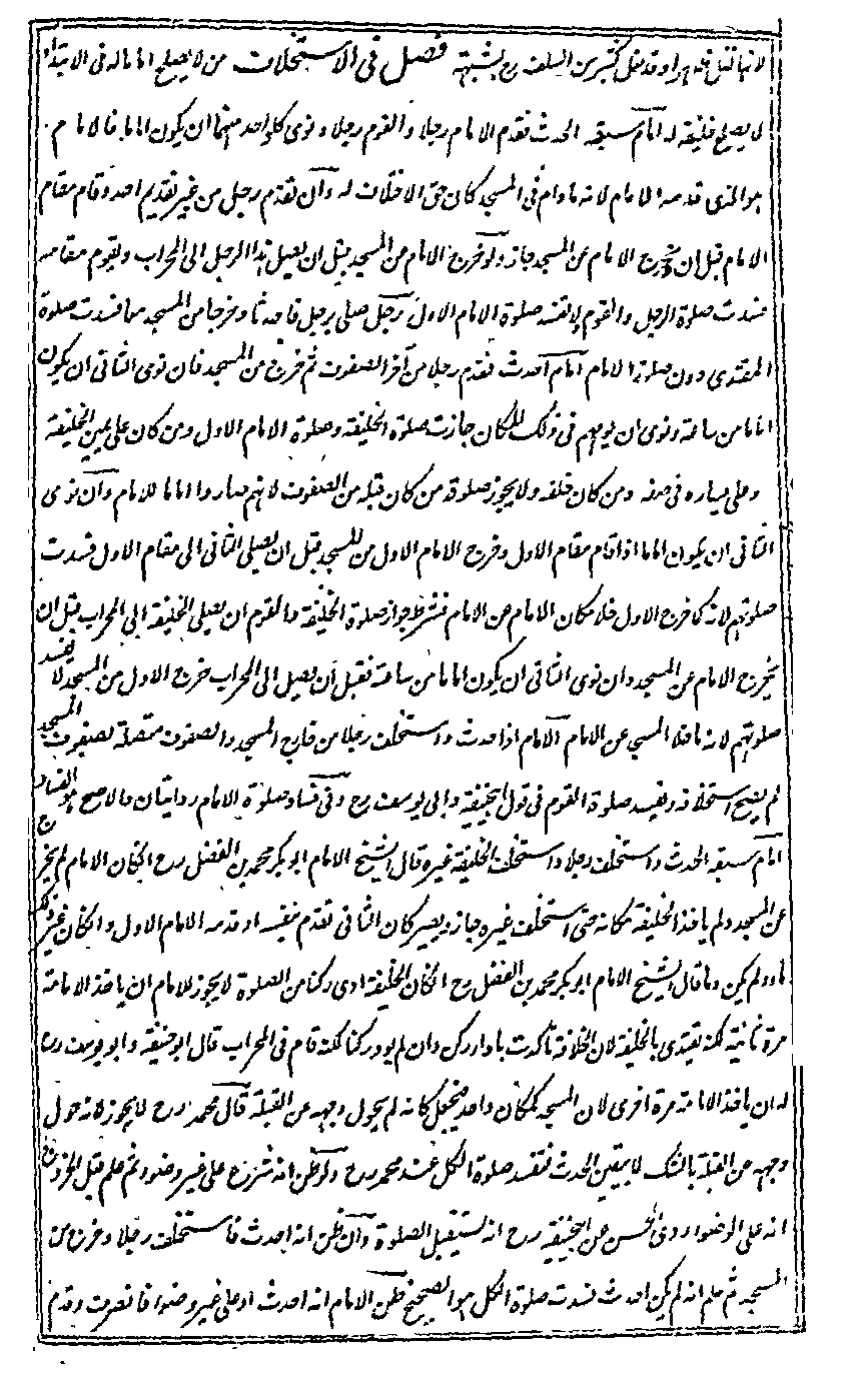 لانها لقل فجـ اد وقد فعل كثير من السلف رح بشبهة فصل فى الاستخلاف من لا يصلح اماما له فى الابتداء
لا يصلح خليفة له امام سبقه الحدث فقدم الامام رجلا والقوم رجلا ونوى كل واحد منهما ان يكون اماما فالامام
هو الذى قدمه الامام لانه مادام فى المسجد كان حق الاخلاف له وان تقدم رجل من غير تقديم احد وقام مقام
الامام قبل ان يخرج الامام عن المسجد جاز ولو خرج الامام من المسجد قبل ان يصل هذا الرجل الى المحراب ويقوم مقامه
فسدت صلوة الرجل والقوم ولا تفسد صلوة الامام الاول رجل صلى برجل فاحدثا وخرجا من المسجد معا فسدت صلوة
المقتدى دون صلوة الامام امام احدث فقدم رجلا من آخر الصفوف ثم خرج من المسجد فان نوى الثانى ان يكون
اماما من ساعته ونوى ان يؤمهم فى ذلك المكان جازت صلوة الخليفة وصلوة الامام الاول ومن كان على يمين الخليفة
وعلى يساره فى صفه ومن كان خلفه ولا يجوز صلوة من كان قبله من الصفوف لانهم صاروا اماما للامام وان نوى
الثانى ان يكون اماما اذا قام مقام الاول وخرج الامام الاول من المسجد قبل ان يصل الثانى الى مقام الاول فسدت
صلوتهم لانه كما خرج الاول خلا مكان الامام عن الامام فشرط جواز صلوة الخليفة والقوم ان يصل الخليفة الى المحراب قبل ان
يخرج الامام عن المسجد وان نوى الثانى ان يكون اماما من ساعته فقبل ان يصل الى المحراب خرج الاول من المسجد لا تفسد
صلوتهم لانه ما خلا المسجد عن الامام الامام اذا احدث واستخلف رجلا من خارج المسجد والصفوف متصلة بصفوف المسجد
لم يصح استخلافه وتفسد صلوة القوم فى قول ابيحنيفة وابى يوسف رح وفى فساد صلوة الامام روايتان والاصح هو الفساد
امام سبقه الحدث واستخلف رجلا واستخلف الخليفة غيره قال الشيخ الامام ابو بكر محمد بن الفضل رح ان كان الامام لم يخرج
عن المسجد ولم ياخذ الخليفة مكانه حتى استخلف غيره جاز ويصير كان الثانى تقدم بنفسه او قدمه الامام الاول وان كان غير ذلك
لم يجز ولم يكن وما قال الشيخ الامام ابو بكر محمد بن الفضل رح ان كان الخليفة ادى ركنا من الصلوة لا يجوز للامام ان ياخذ الامامة
مرة ثانية لكنه يقتدى بالخليفة لان الخلافة تأكدت باداء ركن وان لم يؤد ركنا لكنه قام فى المحراب قال ابو حنيفة وابو يوسف رح
له ان ياخذ الامامة مرة اخرى لان المسجد كمكان واحد فيجعل كانه لم يحول وجهه عن القبلة قال محمد رح لا يجوز لانه حول
وجهه عن القبلة بالشك لا بيقين الحدث فتفسد صلوة الكل عند محمد رح ولو ظن انه شرع على غير وضوء ثم علم قبل الخروج
انه على الوضوء روى الحسن عن ابيحنيفة رح انه يستقبل الصلوة وان ظن انه احدث فاستخلف رجلا وخرج من
المسجد ثم علم انه لم يكن احدث فسدت صلوة الكل هو الصحيح ظن الامام انه احدث او على غير وضوء فانصرف وقدم